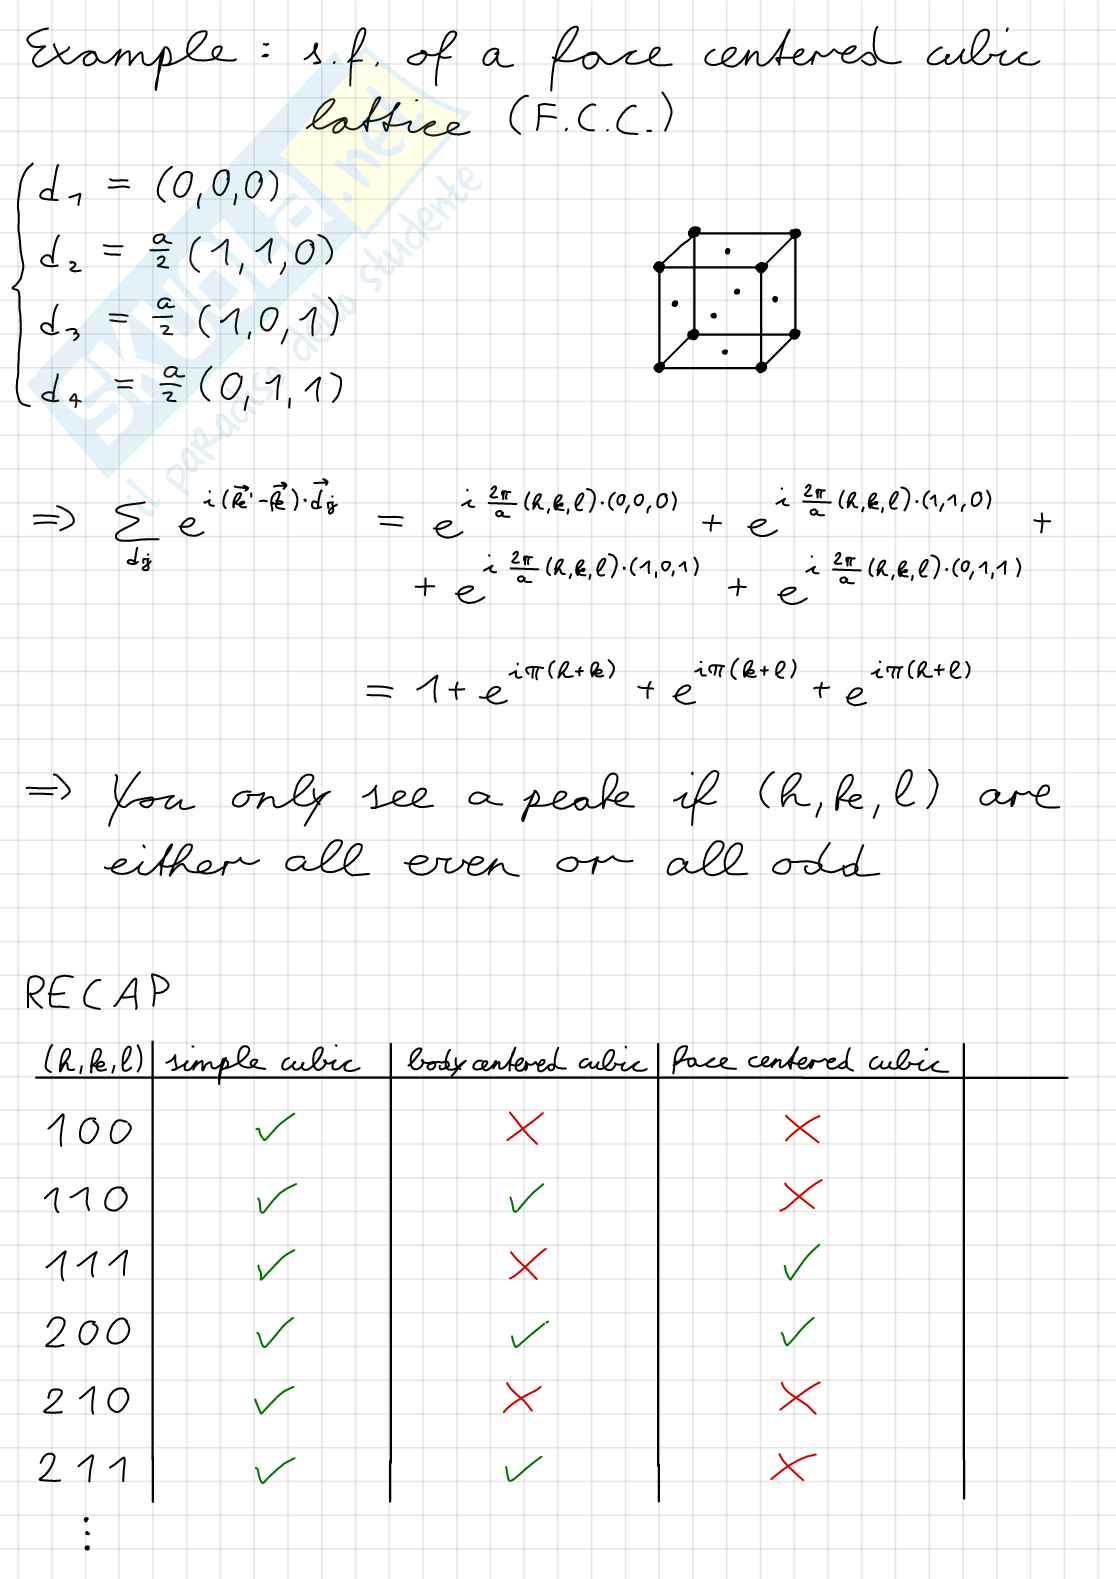 Example : s.f. of a face centered cubic
lattice (F.C.C.)
d₁ = (0,0,0)
d₂ = a/2 (1,1,0)
d₃ = a/2 (1,0,1)
d₄ = a/2 (0,1,1)
⇒ ∑_{dⱼ} e^{i(k⃗'-k⃗)·d⃗ⱼ} = e^{i 2π/a (h,k,l)·(0,0,0)} + e^{i 2π/a (h,k,l)·(1,1,0)} +
+ e^{i 2π/a (h,k,l)·(1,0,1)} + e^{i 2π/a (h,k,l)·(0,1,1)}
= 1 + e^{iπ(h+k)} + e^{iπ(k+l)} + e^{iπ(h+l)}
⇒ You only see a peak if (h,k,l) are
either all even or all odd
RECAP
(h,k,l) simple cubic body centered cubic face centered cubic
100 ✓ ✗ ✗
110 ✓ ✓ ✗
111 ✓ ✗ ✓
200 ✓ ✓ ✓
210 ✓ ✗ ✗
211 ✓ ✓ ✗
⋮
SKUOLA.net
il paradiso dello studente